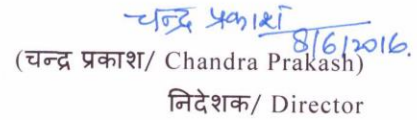 चन्द्र प्रकाश
8/6/2016.
(चन्द्र प्रकाश/ Chandra Prakash)
निदेशक/ Director